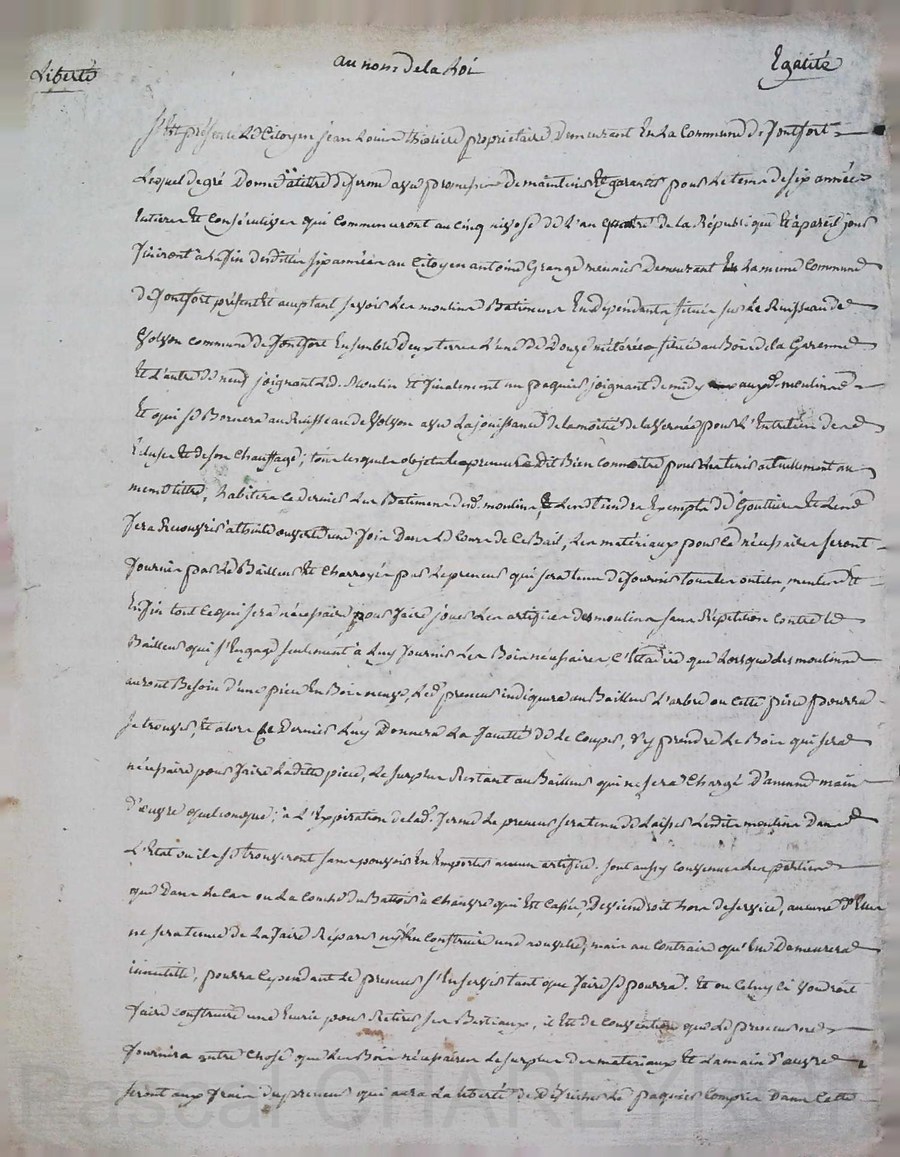 Liberté
au nom de la Loi
Egalité
S'est présenté Le Citoyen Jean Louis thiolliere propriétaire Demeurant En La Commune de Jontfort
Lequel de gré Donne à titre de ferme avec promesse de maintenir Et garantir pour Le terme de six années
Entieres Et Consécutives qui Commenceront au Cinq nivose de L'an quatre de la République Et à pareil jour
finiront à La fin desdittes six années au Citoyen antoine Grange meunier Demeurant En La meme Commune
de Jontfort, présent Et acceptant savoir Les moulins Batiments En Dépendants situés sur Le Ruisseau de
Volvon commune de Jontfort Ensemble Deux terres L'une de Douze méterées située au Bois de la Garenne
Et L'autre de neuf joignant Led. Moulin Et finalement un paquis joignant de midy auxd. moulins
Et qui se Bornera au Ruisseau de Volvon avec La jouissance de la moitié de la Vernée pour L'Entretien de
Ecluse Et de son Chauffage; tous lesquels objets Le preneur a dit Bien Connoitre pour actuellement au
meme titre, habitera Ce dernier Les Batiments desd. moulins, & Les tiendra Exempts de Gouttieres Et Les
fera Recouvrir une fois Dans Le Cours de Ce Bail, Les matériaux pour Ce nécessaires seront
fournis par Le Bailleur Et Charroyés par Le preneur qui sera tenu de fournir tous Les outils, meules Et
Enfin tout Ce qui sera nécessaire pour faire jouer Les artifices des moulins sans Répétition Contre Le
Bailleur qui s'Engage seulement à Luy fournir Les Bois nécessaires C'Est a dire que Lorsque Les moulins
auront Besoin d'une piece En Bois neuve, Led. preneur indiquera au Bailleur L'arbre ou Cette piece pourra
se trouver, Et alors Ce Dernier Luy Donnera La faculté de Le Couper, d'y prendre Le Bois qui sera
nécessaire pour faire Laditte piece, Le surplus Restant au Bailleur qui ne sera Chargé D'aucune main
d'œuvre quelconque; à L'Expiration de Lad. ferme Le preneur sera tenu de Laisser Lesdits moulins Dans
L'Etat ou ils se trouveront sans pouvoir En Emporter aucun artifice. sont aussy Convenues Les parties
que Dans Le Cas ou La Conche du Battoir à Chanvre qui Est Cassée, Deviendroit hors de service, aucune d'Elles
ne sera tenue de La faire Réparer ny En Construire une nouvelle, mais au Contraire qu'Elle Demeurera
inutille, pourra Cependant Le preneur s'En servir tant que faire se pourra. Et ou Celuy Ci Voudroit
faire Construire une Ecurie pour Retirer ses Bestiaux, il Est de Convention que Le preneur ne
fournira autre Chose que Les Bois nécessaires Le surplus des materiaux Et La main d'œuvre
seront aux frais du preneur qui aura La liberté de Défricher Le paquier Compris Dans Cette